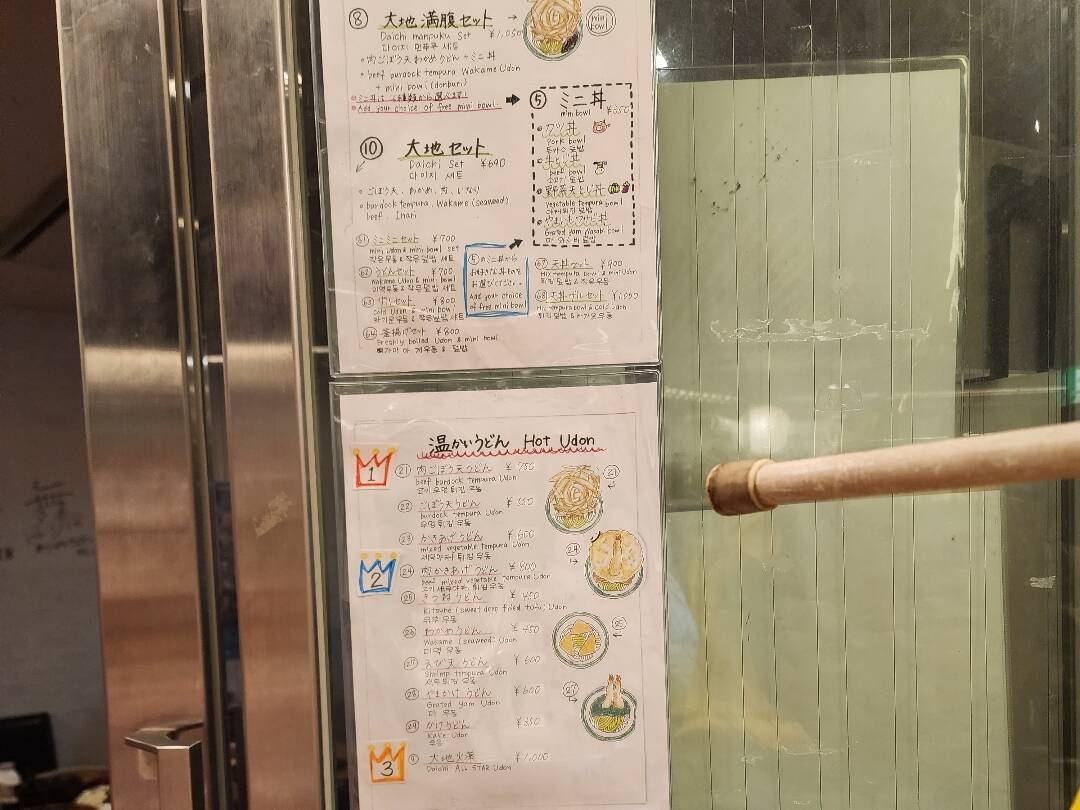 ⑧ 大地満腹セット →
Daichi manpuku Set ¥1,050
다이지 만푸쿠 세트
mini bowl
• 肉ごぼう天わかめうどん + ミニ丼
• beef burdock tempura Wakame Udon
+ mini bowl (donburi)
Add your choice of free mini bowl.
⑤ ミニ丼
mini bowl ¥350
• カツ丼
Pork bowl
돈까스 덮밥
• 牛とじ丼
beef bowl
소고기 덮밥
• 野菜天とじ丼
vegetable tempura bowl
야채튀김 덮밥
Grated yam Wasabi bowl
마 와사비 덮밥
⑩ 大地セット
Daichi Set ¥690
다이지 세트
• ごぼう天、わかめ、肉、いなり
• burdock tempura, Wakame (seaweed)
beef, Inari
61 ミニミニセット ¥700
mini Udon & mini bowl set
작은우동 & 작은덮밥 세트
62 うどんセット ¥700
Wakame Udon & mini bowl
미역우동 & 작은덮밥 세트
63 ザルセット ¥800
cold Udon & mini bowl
차가운우동 & 작은덮밥 세트
64 釜揚げセット ¥800
Freshly boiled Udon & mini bowl
⑤のミニ丼から
お好きな丼もの
お選びください。
Add your choice
of free mini bowl
67 天丼セット ¥900
Mix tempura bowl & mini Udon
튀김 덮밥 & 작은우동
68 天丼ザルセット ¥1,000
Mix tempura bowl & cold Udon
튀김 덮밥 & 차가운우동
温かいうどん Hot Udon
1
21 肉ごぼう天うどん ¥750
beef burdock tempura Udon
고기 우엉 튀김 우동
21
22 ごぼう天うどん
burdock tempura Udon
우엉 튀김 우동
23 かきあげうどん ¥600
mixed vegetable tempura Udon
2
24 肉かきあげうどん ¥800
beef mixed vegetable tempura Udon
24
25 きつねうどん ¥450
Kitsune (sweet deep fried tofu) Udon
유부 우동
25
26 わかめうどん ¥450
Wakame (seaweed) Udon
미역 우동
27 えび天うどん ¥600
Shrimp tempura Udon
새우 튀김 우동
27
28 やまかけうどん ¥600
Grated yam Udon
마 우동
29 かけうどん ¥350
Kake Udon
우동
3
大地火薬 ¥1,000
Daichi All STAR Udon